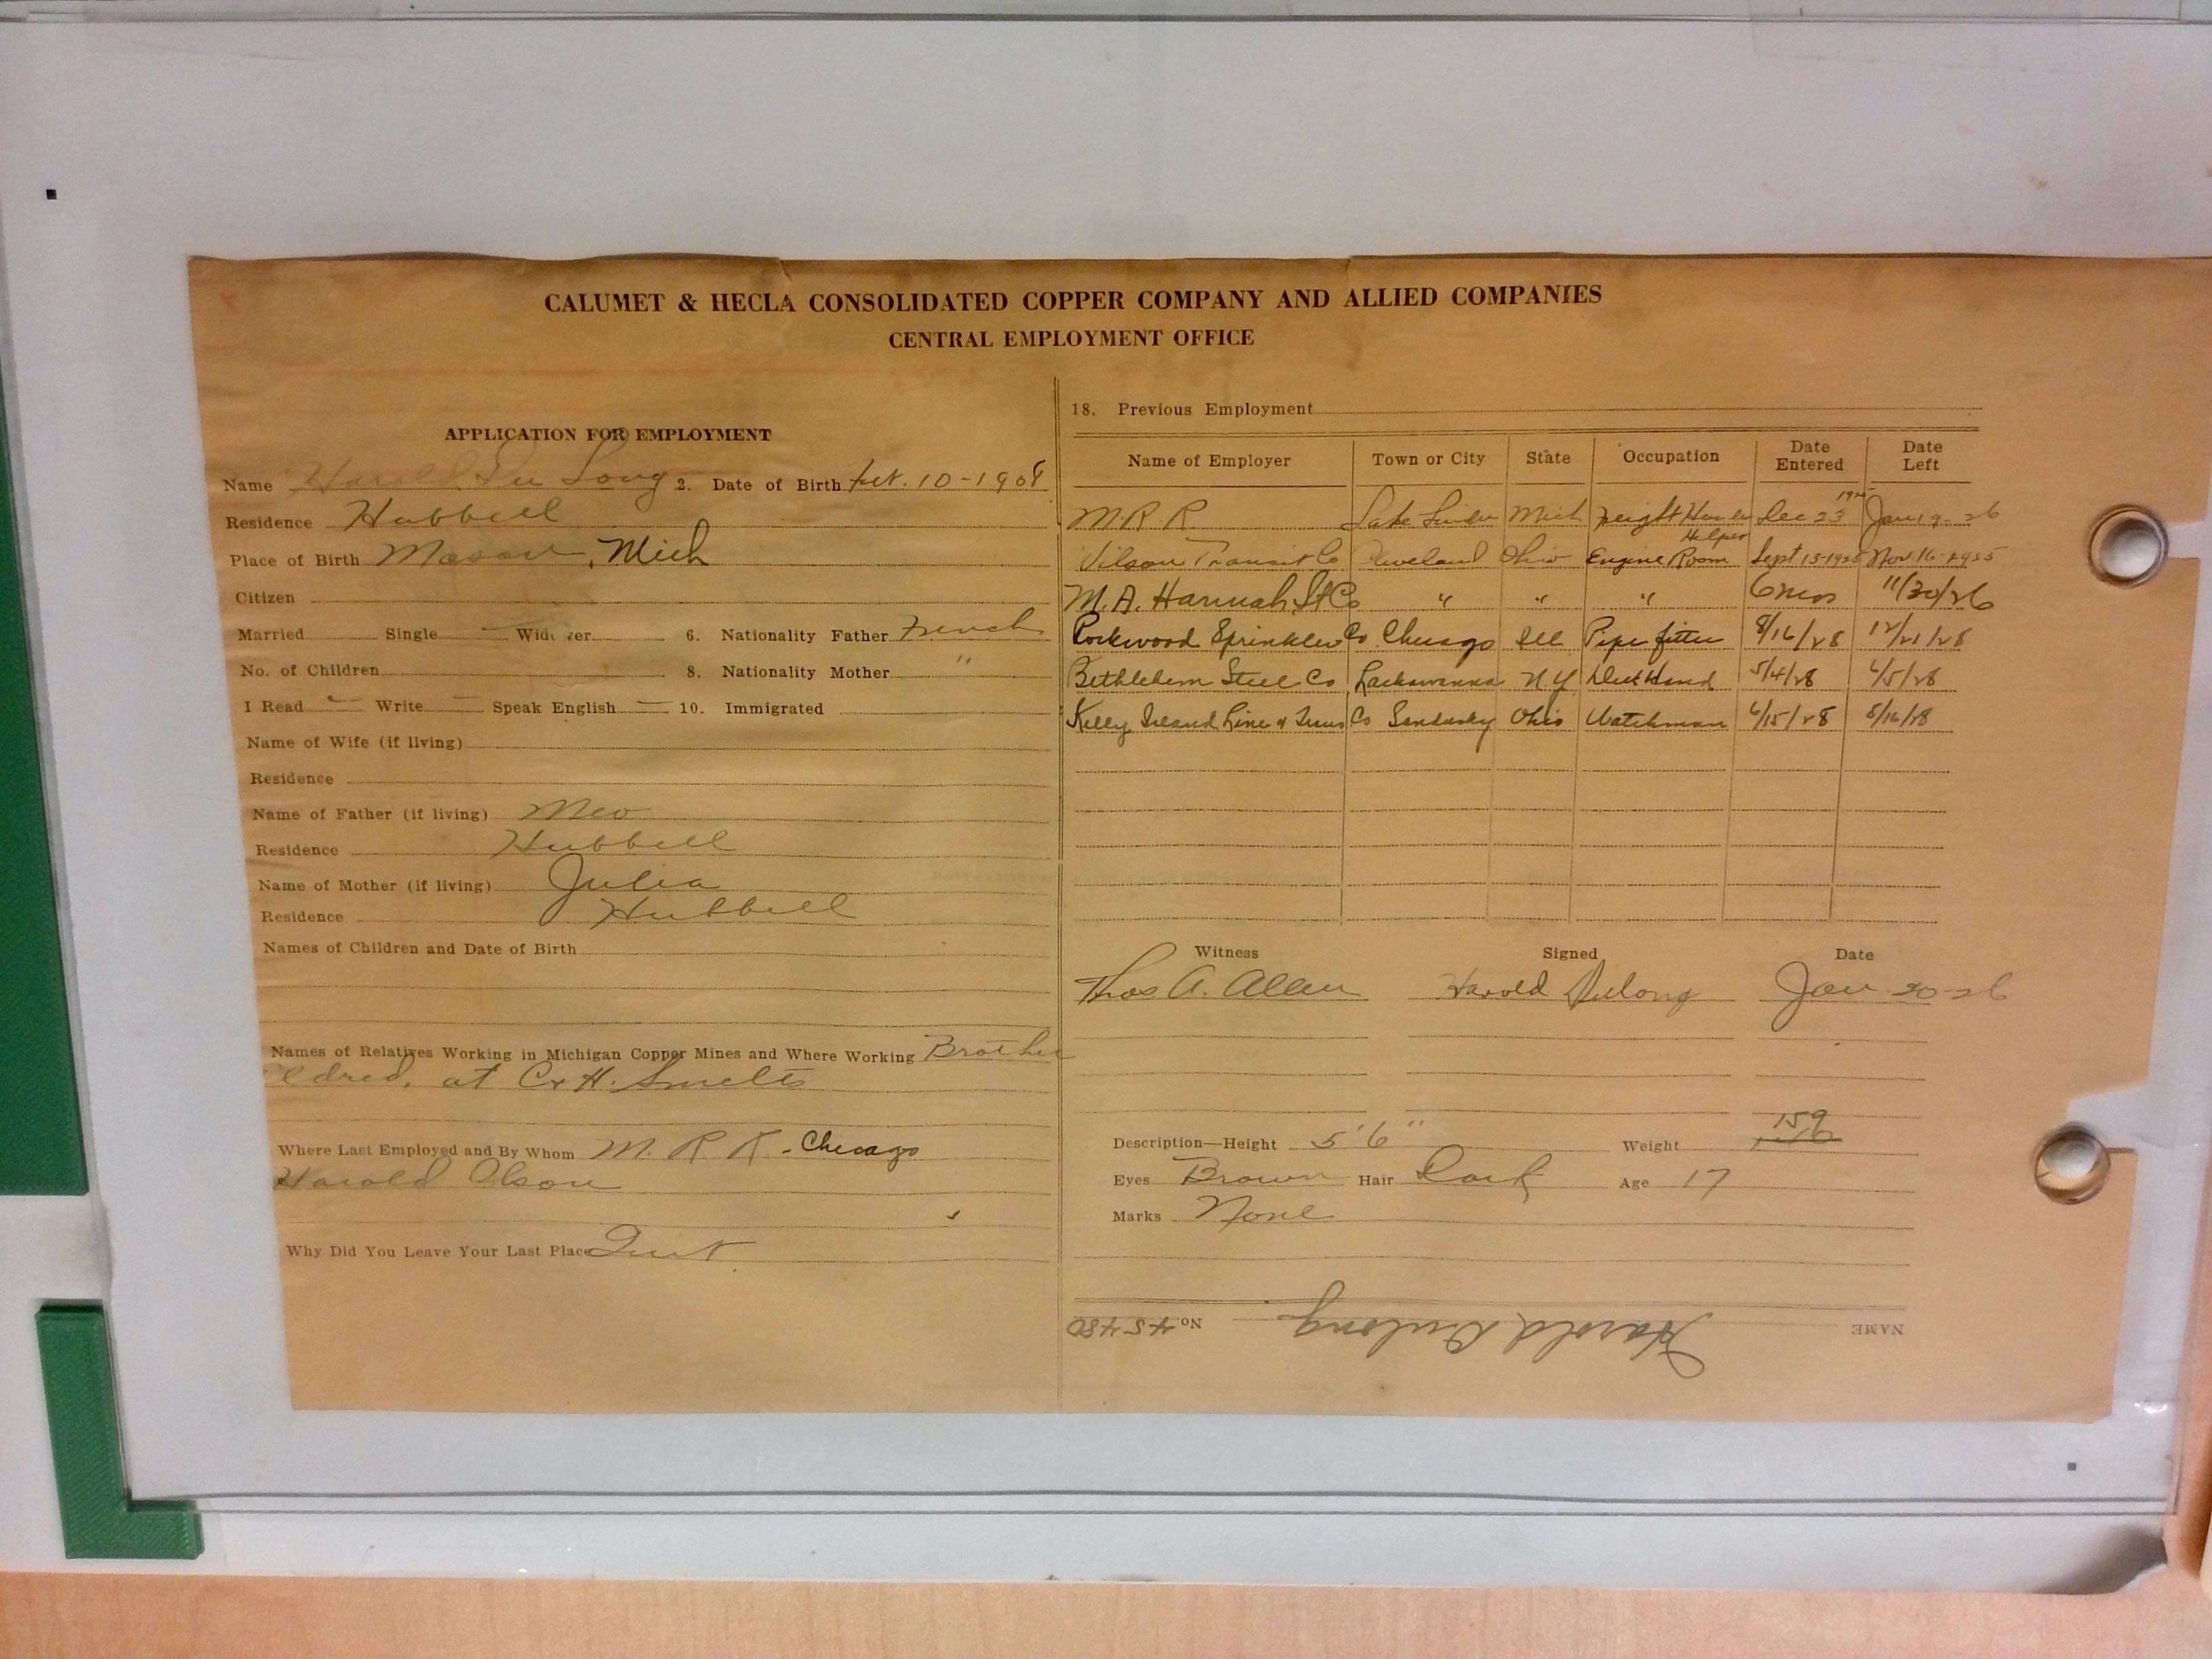 CALUMET & HECLA CONSOLIDATED COPPER COMPANY AND ALLIED COMPANIES
CENTRAL EMPLOYMENT OFFICE
APPLICATION FOR EMPLOYMENT
Name Harold Du Long 2. Date of Birth 10-1908
Residence Hubbell
Place of Birth Mason, Mich
Citizen
Married Single Widower 6. Nationality Father French
No. of Children 8. Nationality Mother "
I Read Write Speak English 10. Immigrated
Name of Wife (if living)
Residence
Name of Father (if living) Meo
Residence Hubbell
Name of Mother (if living) Julia
Residence Hubbell
Names of Children and Date of Birth
Names of Relatives Working in Michigan Copper Mines and Where Working Brother
Eldred, at C & H. Smelter
Where Last Employed and By Whom M. R. R. - Chicago
Harold Olson
Why Did You Leave Your Last Place Quit
18. Previous Employment
Name of Employer Town or City State Occupation Date Entered Date Left
M.R.R. Lake Linden Mich Freight Dec 23 Jan 19-26
Wilson Transit Co Cleveland Ohio Engine Room Helper Sept 13-1925 Nov. 16-1925
M.A. Hannah St Co " " " 6 mos 11/30/26
Rockwood Sprinkler Co Chicago Ill Pipe fitter 8/16/28 12/21/28
Bethlehem Steel Co Lackawanna N.Y. Deck Hand 5/4/28 6/5/28
Kelly Island Lime & Trans Co Sandusky Ohio Watchman 6/15/28 8/16/28
Witness Signed Date
Thos A. Allen Harold Dulong Jan 20-26
Description—Height 5' 6" Weight 159
Eyes Brown Hair Dark Age 17
Marks None
NAME Harold Dulong No. 45480